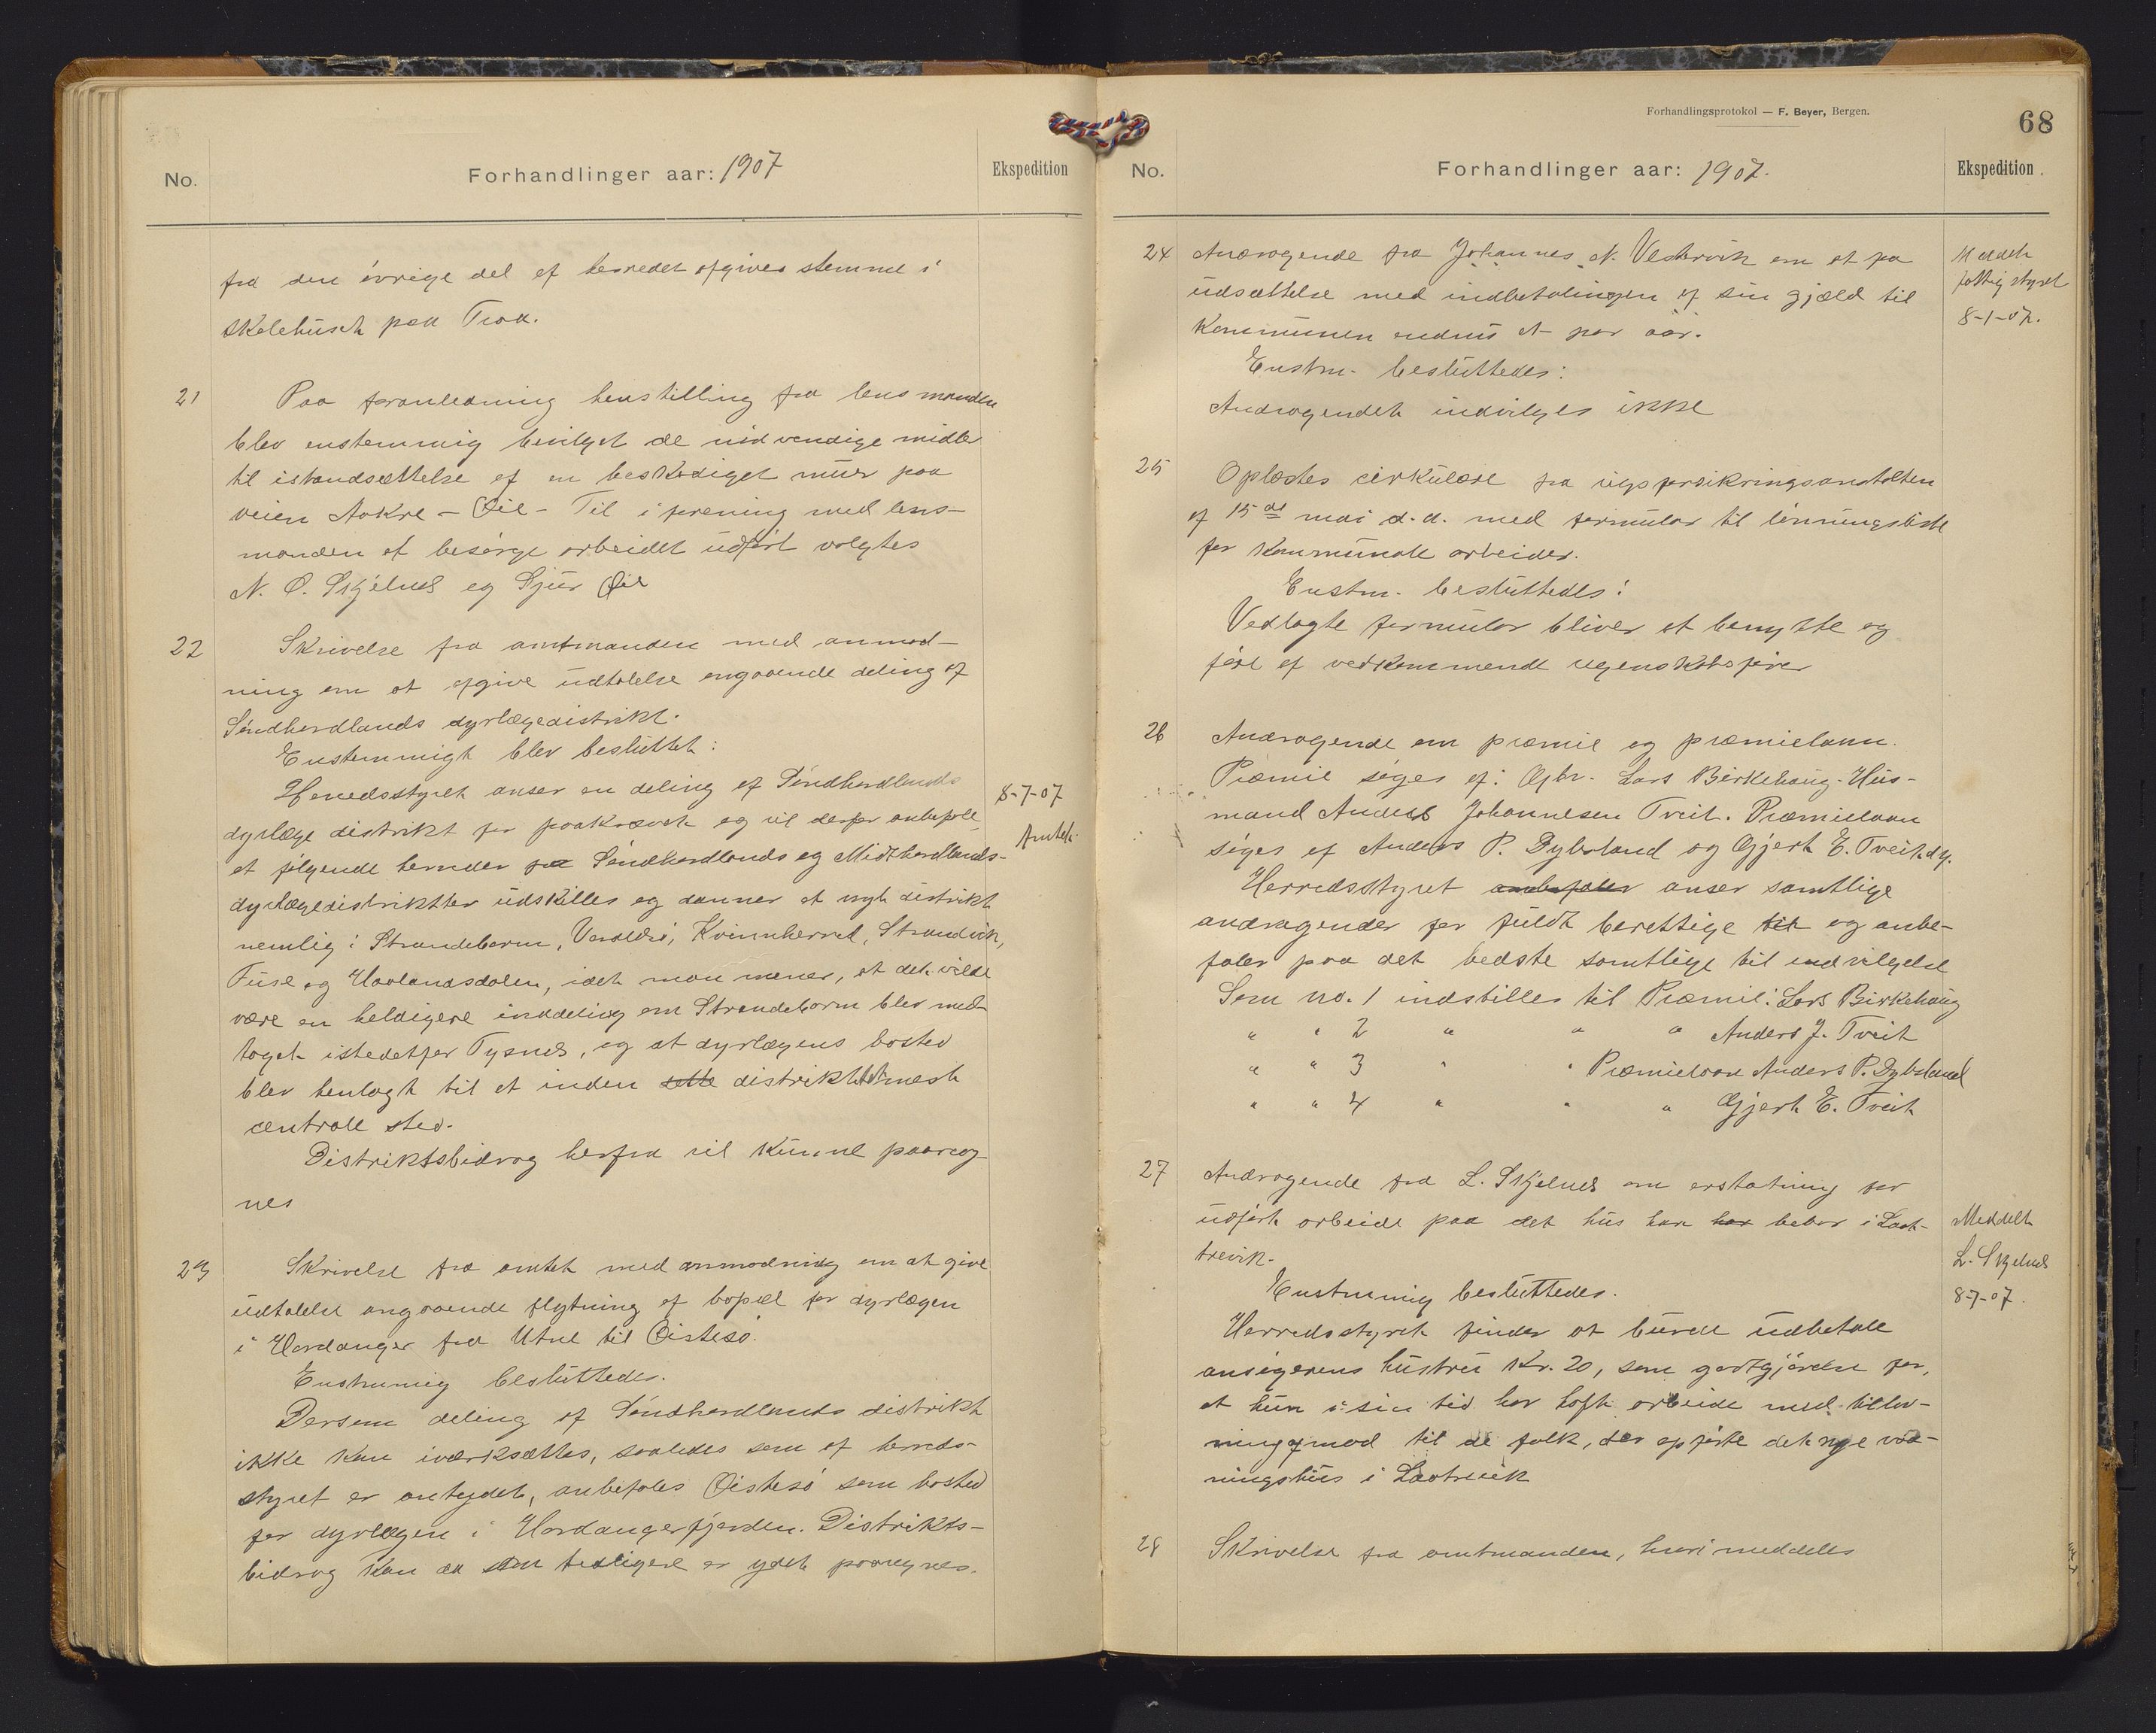 No.
Forhandlinger aar: 1907
Ekspedition
fra den övrige del af herredet afgives stemme i
skolehuset paa Troa.
21
Paa foranledning henstilling fra lensmanden
blev enstemmig bevilget de nödvendige midler
til istandsættelse af en beskadiget mur paa
veien Aakre - Øie - Til i forening med lens-
manden at besörge arbeidet udfört valgtes
N. O. Skjelnes og Sjur Øie
22
Skrivelse fra amtmanden med anmod-
ning om at afgive udtalelse angaaende deling af
Söndhordlands dyrlægedistrikt.
Enstemmigt blev besluttet:
Herredsstyret anser en deling af Söndhordlands
dyrlæge distrikt for paakrævet og vil derfor anbefale
at fölgende herreder fra Söndhordlands og Midthordlands-
dyrlægedistrikter udskilles og danner et nyt distrikt
nemlig: Strandebarm, Varaldsö, Kvinnherred, Strandvik,
Fuse og Haalandsdalen, idet man mener, at det vilde
være en heldigere inddeling om Strandebarm blev med-
taget istedetfor Tysnes, og at dyrlægens bosted
blev henlagt til et inden dette distriktet mest
centrale sted.
Distriktsbidrag herfra vil kunne paareg-
nes
8-7-07
Amtet.
23
Skrivelse fra amtet med anmodning om at give
udtalelse angaaende flytning af bopæl for dyrlægen
i Hardanger fra Utne til Øistesö.
Enstemmig besluttedes.
Dersom deling af Söndhordlands distrikt
ikke kan iværksættes, saaledes som af herreds-
styret er antydet, anbefales Øistesö som bosted
for dyrlægen i Hardangerfjorden. Distrikts-
bidrag kan da som tidligere er ydet paaregnes.
Forhandlingsprotokol — F. Beyer, Bergen.
68
No.
Forhandlinger aar: 1907.
Ekspedition.
24 Andragende fra Johannes N. Vestervik om at faa
udsættelse med indbetalingen af sin gjæld til
kommunen endnu et par aar.
Enstm. besluttedes:
Andragendet indvilges ikke
Meddelt
fattigstyret
8-1-07.
25
Oplæstes cirkulære fra rigsforsikringsanstalten
af 15de mai d.a. med formular til lönningsliste
for kommunale arbeider.
Enstm. besluttedes:
Vedlagte formular bliver at benytte og
före af vedkommende regenskabsförer
26
Andragende om præmie og præmielaan.
Præmie söges af: Gbr. Lars Birkehaug. Hus-
mand Anders Johannesen Tveit. Præmielaan
söges af Anders P. Dybsland og Gjert E. Tveit d.y.
Herredsstyret anbefaler anser samtlige
andragender for fuldt berettige til og anbe-
faler paa det bedste samtlige til indvilgelse
Som no. 1 indstilles til Præmie: Lars Birkehaug
" " 2 " " " Anders J. Tveit
" " 3 " " Præmielaan Anders P. Dybsland
" " 4 " " " Gjert E. Tveit
27 Andragende fra L. Skjelnes om erstatning for
udfört arbeide paa det hus han har bebor i Laat-
trevik.
Enstemmig besluttedes.
Herredsstyret finder at burde udbetale
ansögerens hustru Kr. 20, som godtgjörelse for,
at hun i sin tid har haft arbeide med tillav-
ning af mad til de folk, der opförte det nye vaa-
ningshus i Laatrevik
Meddelt
L. Skjelnes
8-7-07.
28 Skrivelse fra amtmanden, hvori meddeles